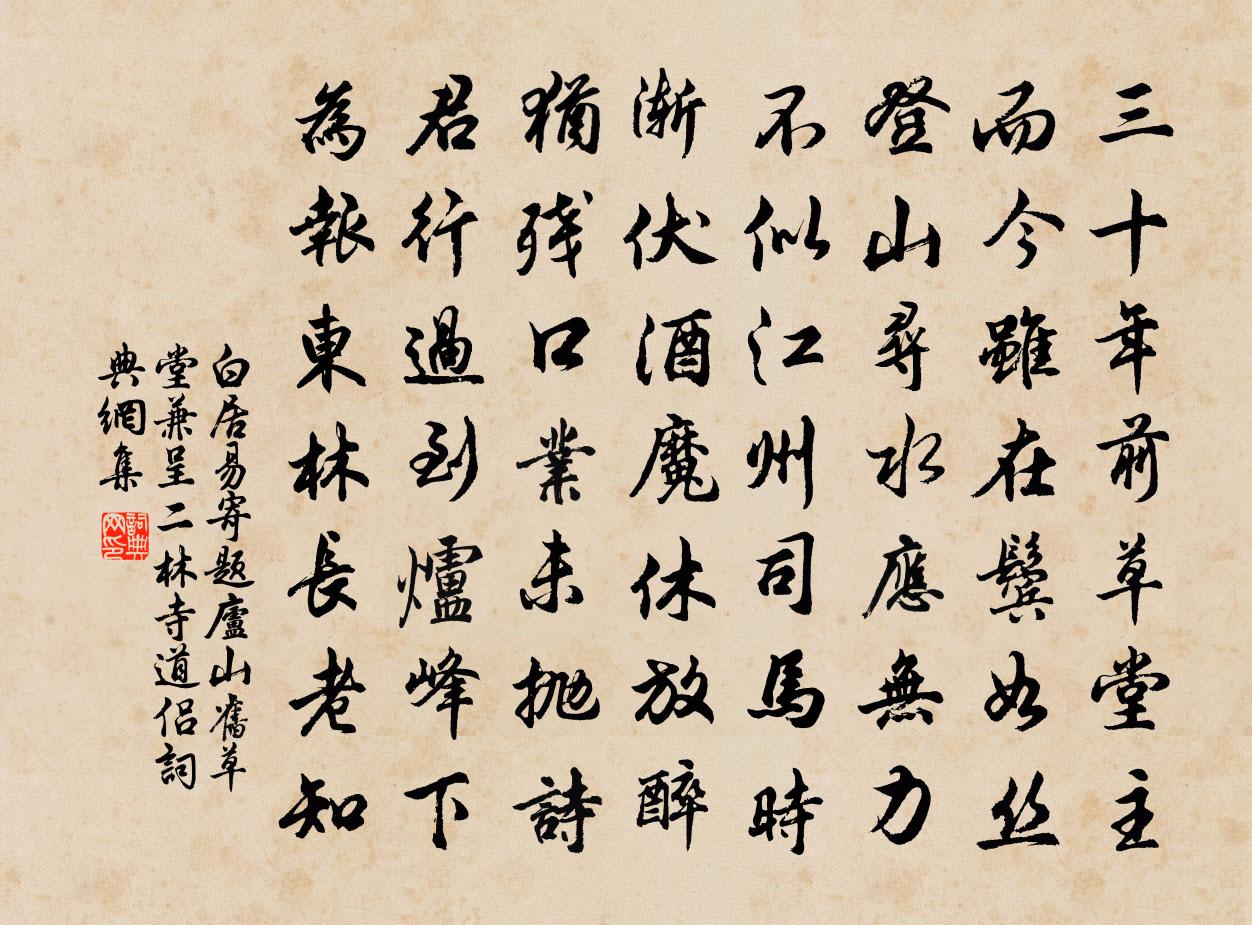 三十年前草堂主
而今雖在鬢如丝
登山尋水應無力
不似江州司馬時
漸伏酒魔休放醉
猶殘口業未抛詩
君行過到爐峰下
為報東林長老知
白居易寄题廬山舊草
堂兼呈二林寺道侣詞
典網集
詞典
网印